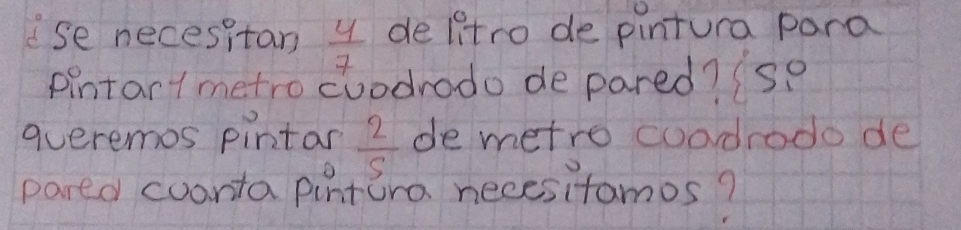 ¿Se necesitan 4/7 de litro de pintura para
pintar 1 metro cuadrado de pared? ¿si
queremos pintar 2/5 de metro cuadrado de
pared cuanta pintura necesitamos?